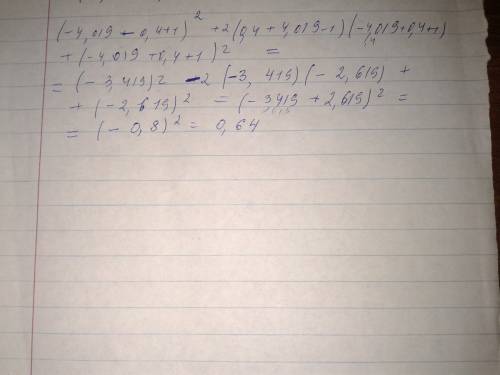 (-4,019 - 0,4+1)² +2(0,4 + 4,019-1)(-4,019+0,4+1)
+(-4,019+0,4+1)² =
= (-3,419)² -2 (-3, 419)(-2,619) +
+ (-2,619)² = (-3419 + 2,619)² =
= (-0,8)² = 0,64